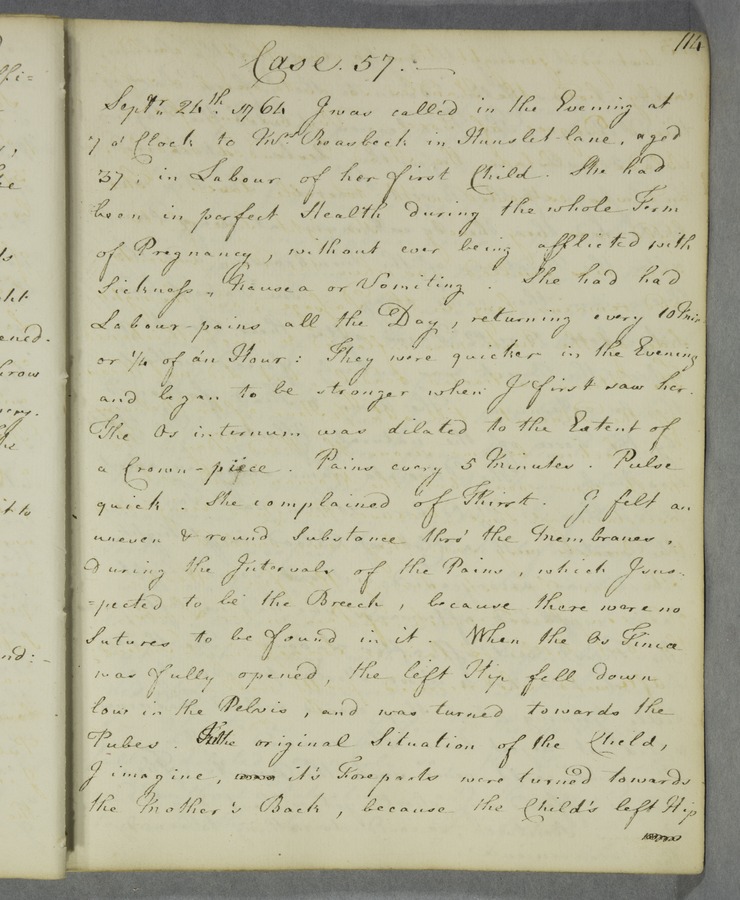 114
Case. 57.
Septr. 24th. 1764 I was call'd in the Evening at
7 o' Clock to Mrs. Roasbeck in Hunslet-lane, aged
37, in Labour of her first Child. She had
been in perfect Health during the whole Term
of Pregnancy, without ever being afflicted with
Sickness, Nausea or Vomiting. She had had
Labour-pains all the Day, returning every 10 Min.
or 1/4 of an Hour: They were quicker in the Evening
and began to be stronger when I first saw her.
The Os internum was dilated to the Extent of
a Crown-piece. Pains every 5 Minutes. Pulse
quick. She complained of Thirst. I felt an
uneven & round Substance thro' the Membranes,
During the Intervals of the Pains, which I sus-
-pected to be the Breech, because there were no
Sutures to be found in it. When the Os Tincæ
was fully opened, the left Hip fell down
low in the Pelvis, and was turned towards the
Pubes. In the original Situation of the Child,
I imagine, it's Foreparts were turned towards
the Mother's Back, because the Child's left Hip
ffi=
ened.
hrow
it to
nd:-